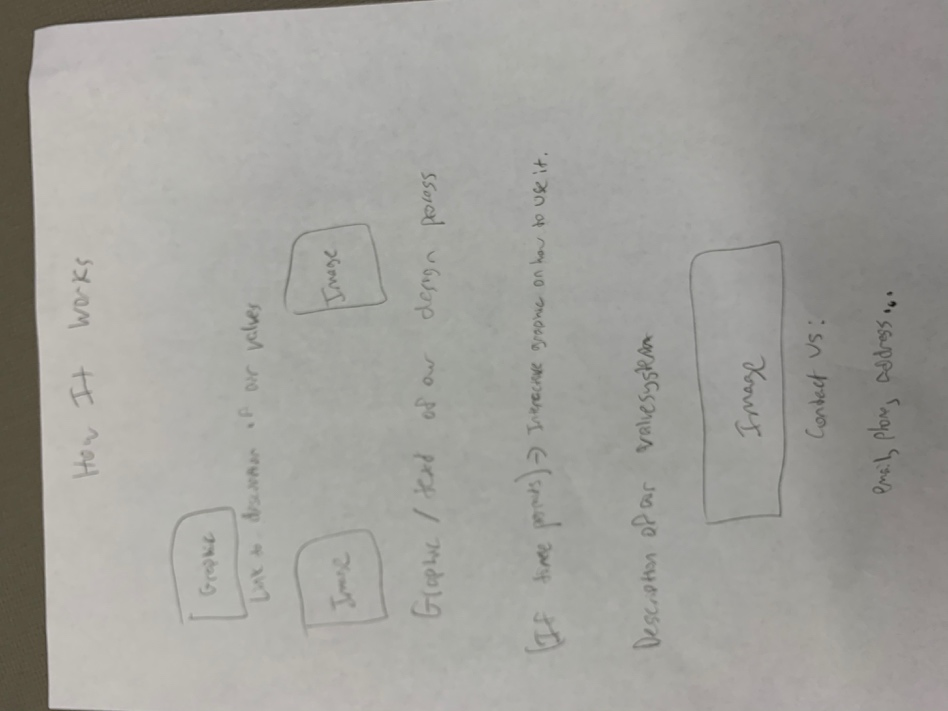 How It Works
Graphic
Link to description of our values
Image
Image
Graphic / text of our design process
(If time permits) → Interactive graphic on how to use it.
Description of our value system
Image
Contact Us:
email, phone, address...